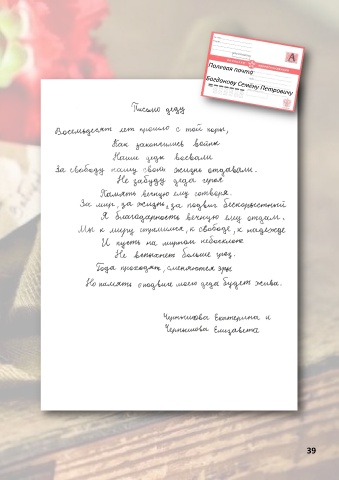 А
Полевая почта
Богданову Семёну Петровичу
Письмо деду
Восемьдесят лет прошло с той поры,
Как закончились войны
Наши деды воевали
За свободу нашу свои жизни отдавали.
Не забуду деда героя
Память вечную ему сотворя.
За мир, за жизнь, за подвиг бескорыстный
Я благодарность вечную ему отдам.
Мы к миру стремимся, к свободе, к надежде
И пусть на мирном небосклоне
Не вспыхнет больше гроз.
Года проходят, сменяются эры
Но память о подвиге моего деда будет жива.
Чернышова Екатерина и
Чернышова Елизавета
39